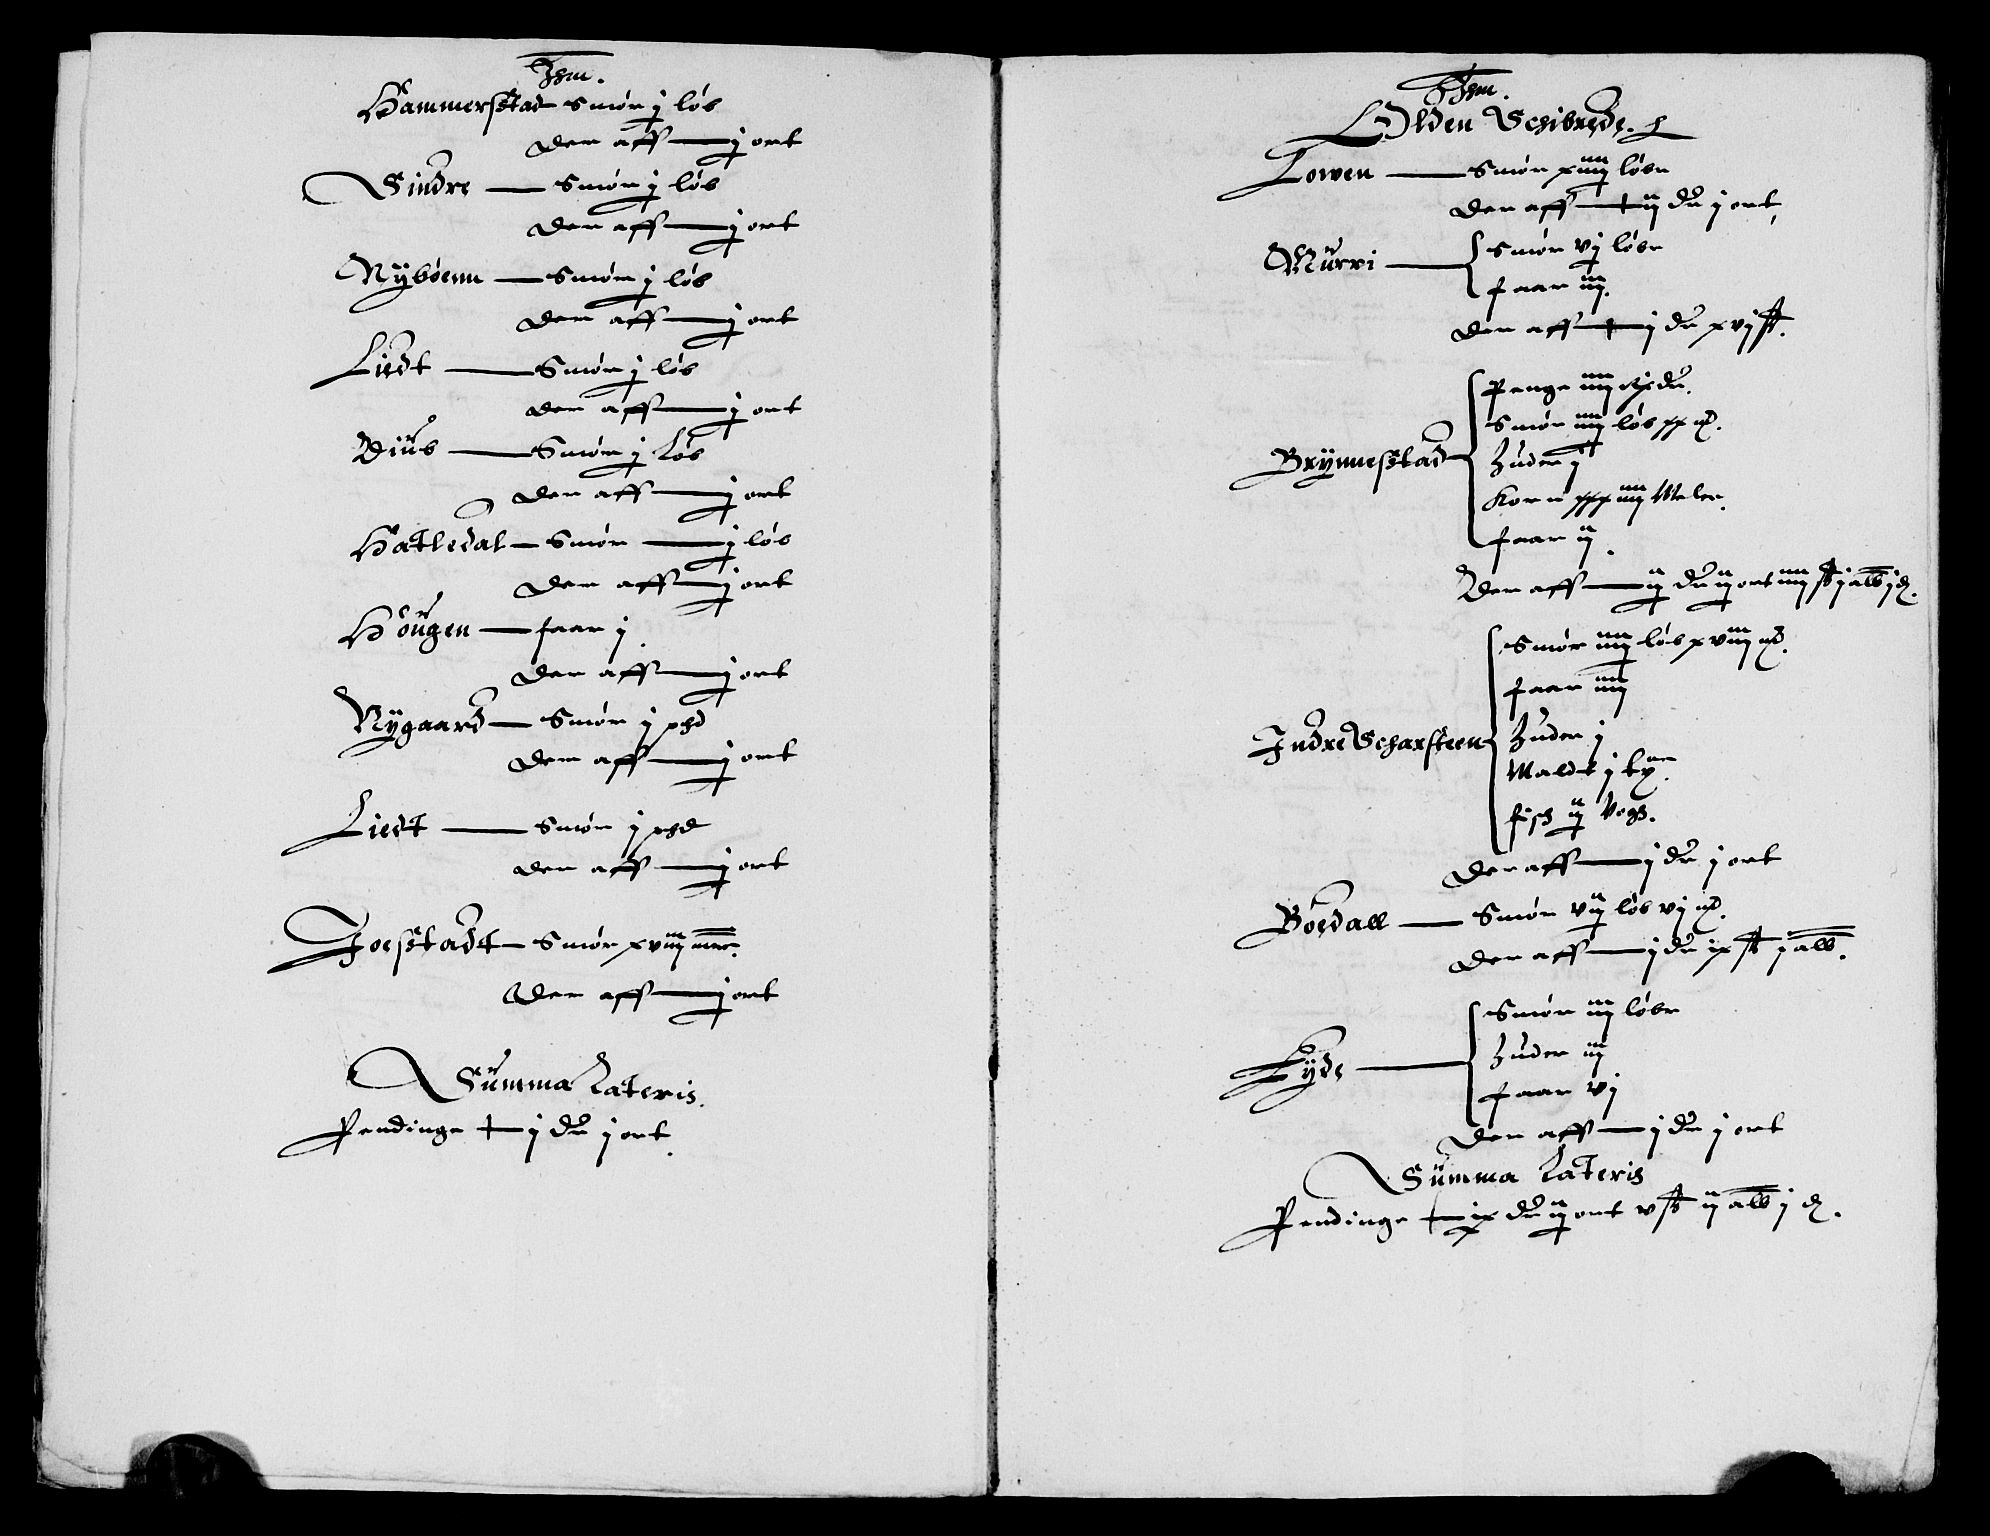 Ihm.
Hammerstad Smør j løb
Der aff — j ort
Sindre — Smør j løb
Der aff — j ort
Nÿbøenn — Smør j løb
Der aff — j ort
Liedt — Smør j løb
Der aff — j ort
Diüb — Smør j Løb
Der aff — j ort
Hatledal — Smør — j løb
Der aff — j ort
Hoügen — faar j
Der aff — j ort
Nÿgaard — Smør j pd
Der aff — j ort
Liedt — Smør j pd
Der aff — j ort
Joestadt — Smør xviij mrc.
Der aff — j ort
Summa Lateris.
Pendinge — j dr j ort.
Ihm.
Olden Schibrede.
Lowen — Smør xiiij løbe
Der aff — ij dr j ort
Mürri — Smør vj løbe
faar iij.
Der aff — j dr xvj ß.
Brÿnnestad
Penge iiij Rixdr.
Smør iiij løb xx mk.
Huder j
Korn xxxiiij Meler.
faar ij.
Der aff — ij dr ij ort iiij ß j alb j d.
Indre Scharsteen
Smør iiij løb xviij mk.
faar iiij
Huder j
Maldt j tn.
fisch ij Vog.
Der aff — j dr j ort
Boedall — Smør vij løb vj mk.
Der aff — j dr ix ß j alb.
Eÿde
Smør iij løbe
Huder iij
faar vj
Der aff — j dr j ort
Summa Lateris
Pendinge — ix dr ij ort v ß ij alb j d.